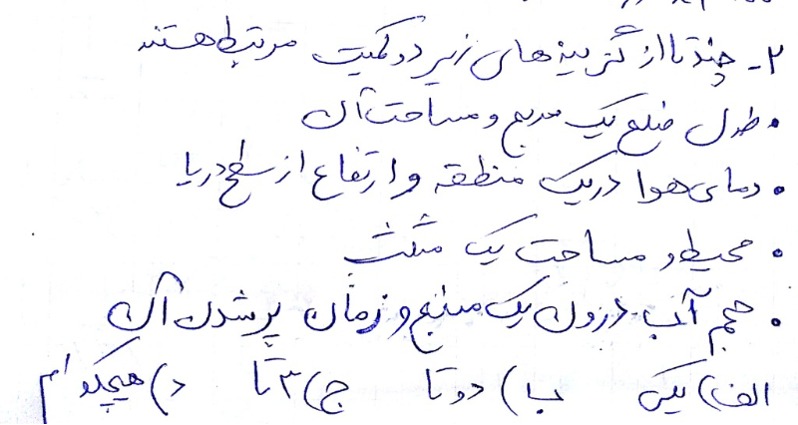 ۲- چندتا از گزینه‌های زیر دو کمیت مرتبط هستند
• طول ضلع یک مربع و مساحت آن
• دمای هوا در یک منطقه و ارتفاع از سطح دریا
• محیط و مساحت یک مثلث
• حجم آب درون یک منبع و زمان پر شدن آن
الف) یکی ب) دوتا ج) ۳تا د) هیچکدام